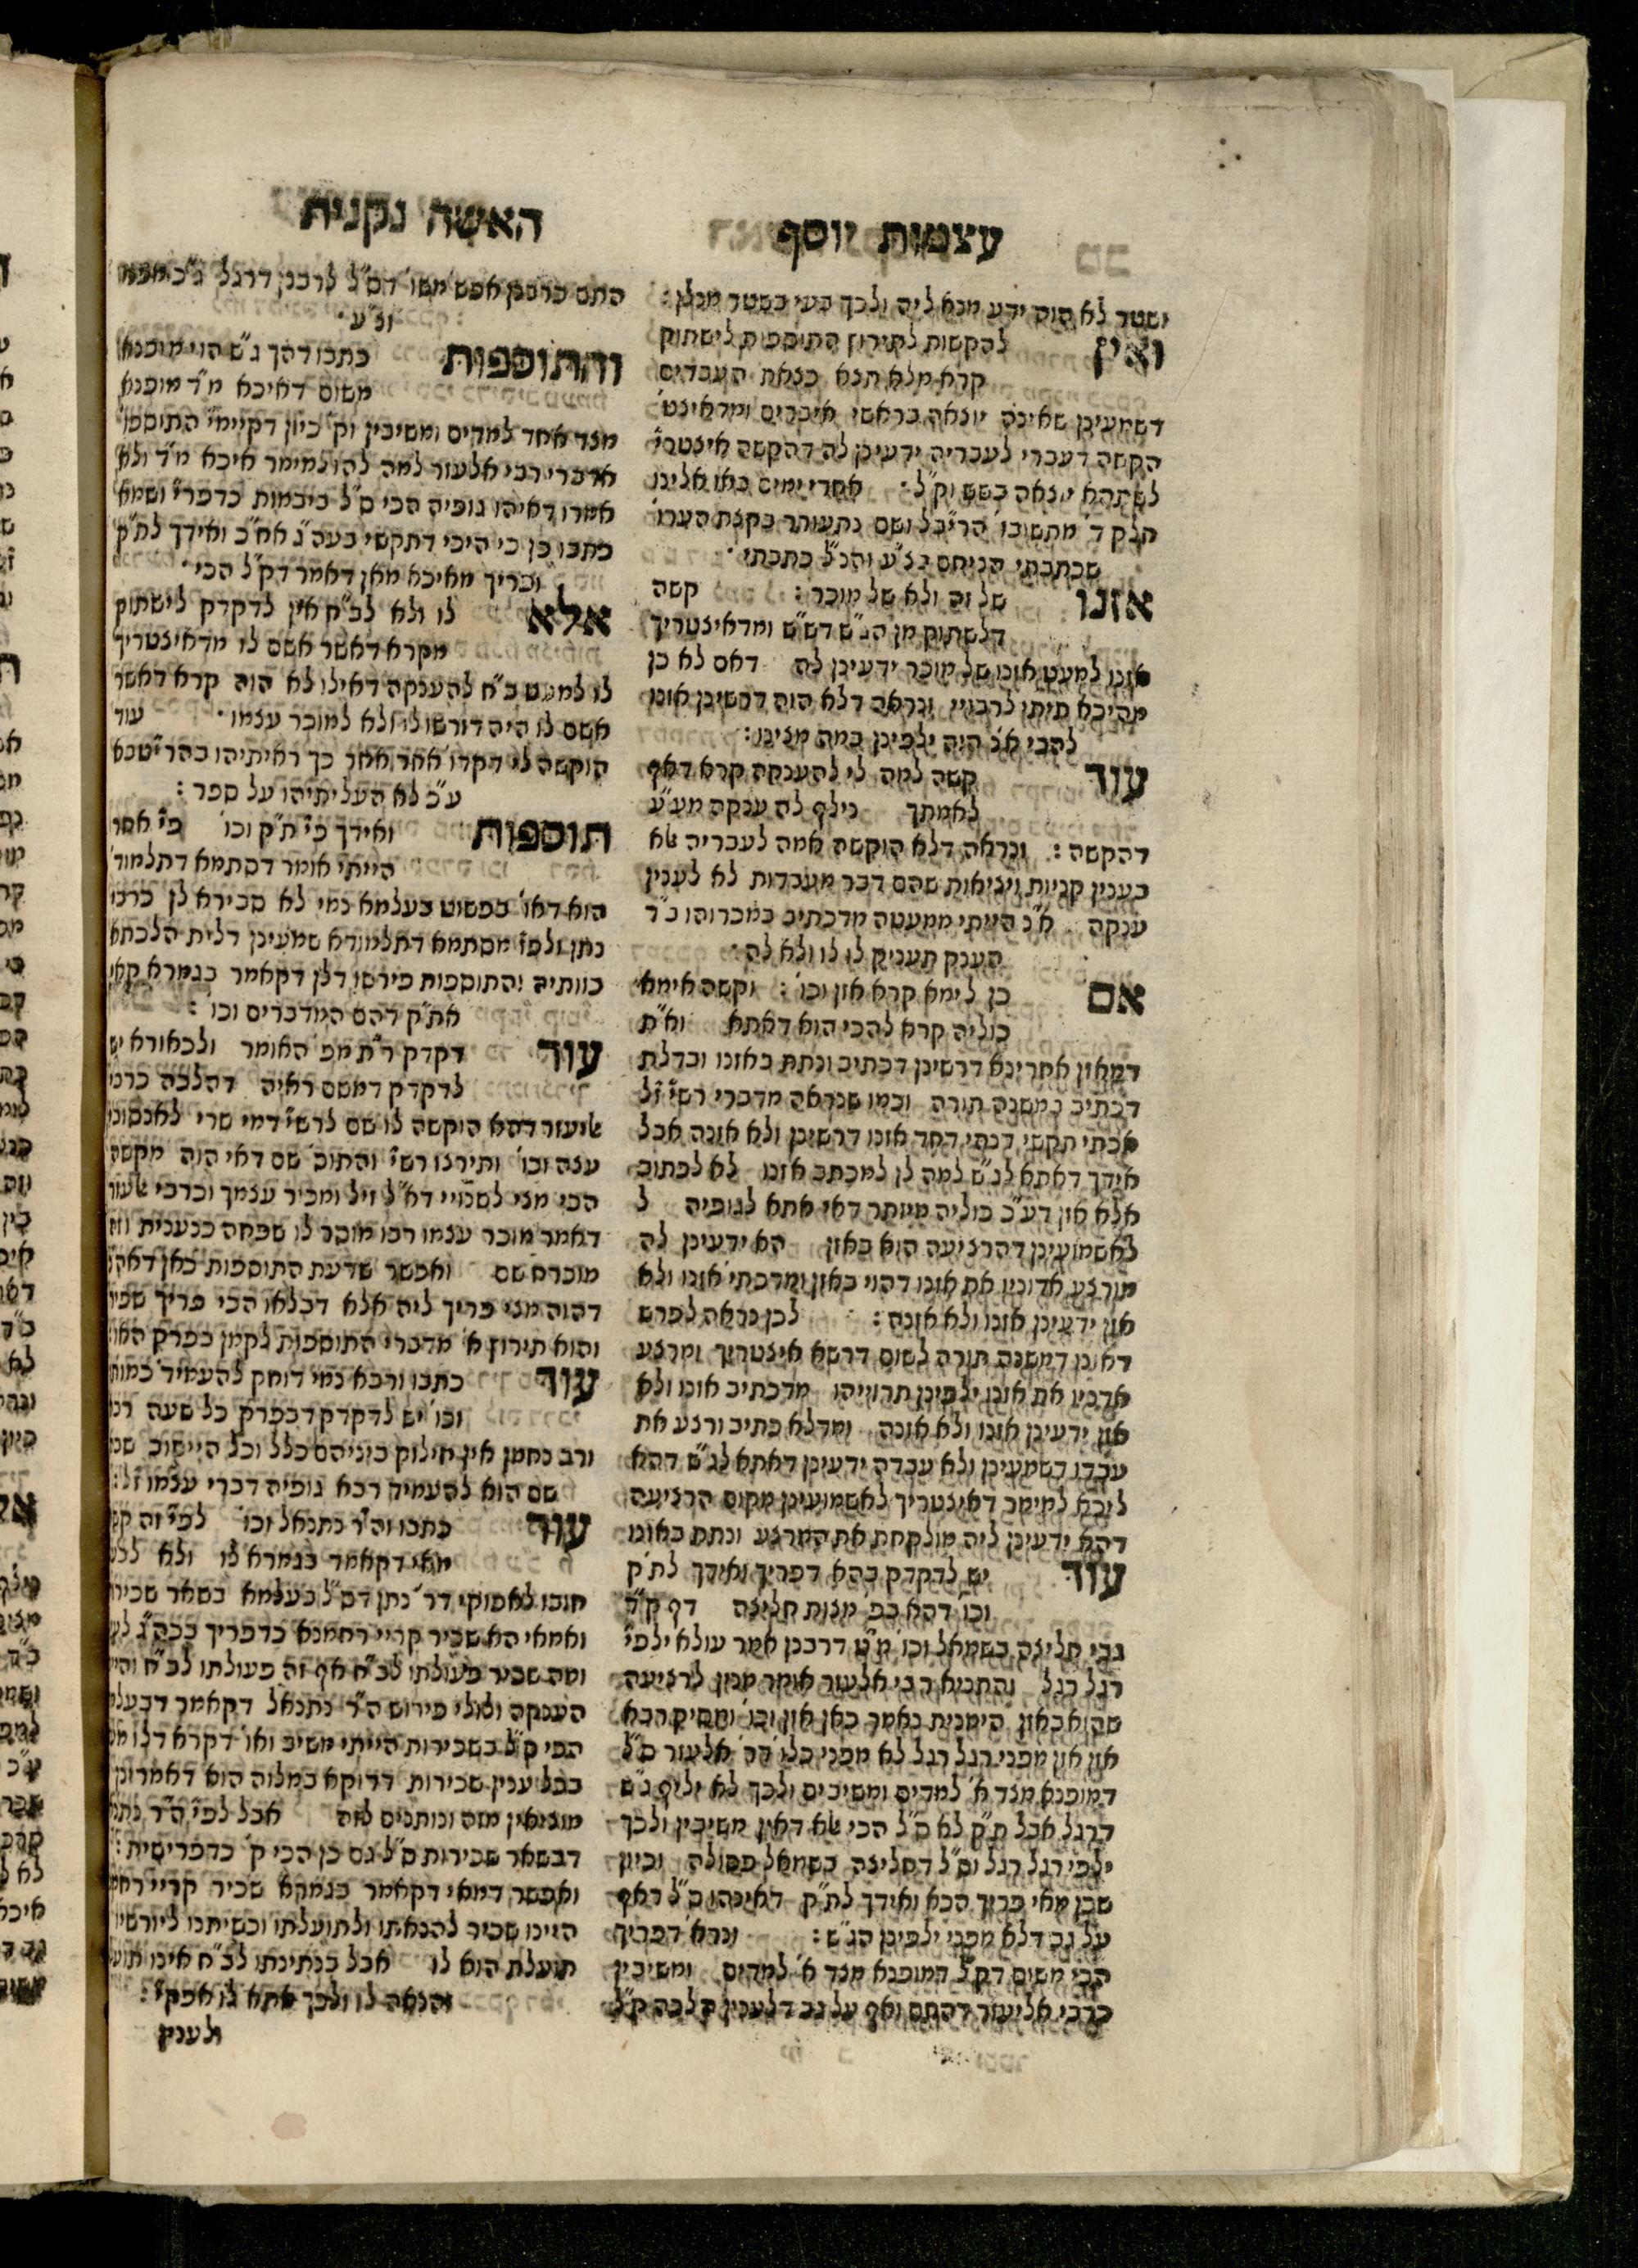 עצמות יוסף
האשה נקנית
ושטר לא הוה ידע מנא ליה ולכך בעי בשטר מנלן :
ואין להקשות לתירוץ התוספות לישתוק
קרא מלא תצא כצאת העבדים
דשמעינן שאינה יוצאה בראשי איברים ומדאיצט'
הקשה דעברי לעבריה ידעינן לה דהקשה איצטרי'
לשתהא יוצאה בשש וק"ל · אחרי ימים באו אלינו
חלק ד' מתשובו' הרי"בל ושם נתעורר בקצת הערו'
שכתבתי הניחם בצ"ע והנ"ל כתבתי ·
אזנו של זה ולא של מוכר : קשה
דלשתוק מן הג"ש דש"ש ומדאיצטריך
אזנו למעט אזנו של מוכר ידעינן לה דאם לא כן
מהיכא תיתי לרבויי ונראה דלא הוה דרשינן אזנו
להכי א"נ היה ילפינן במה מצינו :
עוד קשה למה לי להענקה קרא דאף
לאמתך נילף לה ענקה מע"ע
דהקשה : ונראה דלא הוקשה אמה לעבריה אלא
בענין קניות ויציאות שהם דבר מעבדות לא לענין
ענקה א"נ הייתי ממעטה מדכתיב במכרוהו ב"ד
הענק תעניק לו לו ולא לה ·
אם כן לימא קרא אזן וכו' : וקשה אימא
כוליה קרא להכי הוא דאתא וא"ת
דמאזן אחרינא דרשינן דכתיב ונתת באזנו ובדלת
דכתיב במשנה תורה וכמו שנראה מדברי רש"י ז"ל
אכתי תקשי דנהי דחד אזנו דרשינן ולא אזנה אבל
אידך דאתא לג"ש למה לן למכתב אזנו לא לכתוב
אלא אזן דע"כ כוליה מיותר דאי אתא לגופיה ל
לאשמועינן דהרציעה הוא באזן הא ידעינן לה
מורצע אדוניו את אזנו דהוי באזן ומדכתי' אזנו ולא
אזן ידעינן אזנו ולא אזנה : לכן נראה לפרש
דאזנו דמשנה תורה לשום דרשא איצטריך ומרצע
אדניו את אזנו ילפינן תרווייהו מדכתיב אזנו ולא
אזן ידעינן אזנו ולא אזנה ומדלא כתיב ורצע את
עבדו דשמעינן ולא עבדה ידעינן דאתא לג"ש דהא
ליכא למימר דאיצטריך לאשמועינן מקום הרציעה
דהא ידעינן ליה מולקחת את המרצע ונתת באזנו
עוד יש לדקדק בהא דפריך ואידך לת"ק
וכו' דהא בפ' מצות חליצה דף ק"ד
גבי חליצה בשמאל וכו' מ"ט דרבנן אמר עולא ילפי'
רגל רגל והתניא רבי אלעזר אומר מנין לרציעה
שהוא באזן הימנית נאמר כאן אזן וכו' ומסיק רבא
אזן אזן מפני רגל רגל לא מפני כלו' דר' אלעזר ס"ל
דמופנא מצד א' למדים ומשיבים ולכך לא יליף ג"ש
דרגל אבל ת"ק לא ס"ל הכי אלא דאין משיבין ולכך
ילפי רגל רגל וס"ל דחליצה בשמאל פסולה וכיון
שכן מאי פריך הכא ואידך לת"ק דאינהו ס"ל דאף
על גב דלא מפני ילפינן הג"ש : ונרא' דפריך
הכי משום דק"ל דמופנא מצד א' למדים ומשיבין
כרבי אליעזר דהתם ואף על גב דלענין הלכה ק"ל
התם כרבנן אפש' משו' דס"ל לרבנן דרגל ג"כ מופנא
וצ"ע ·
והתוספות כתבו דהך ג"ש הוי מופנא
משום דאיכא מ"ד מופנא
מצד אחד למדים ומשיבין וק' כיון דקיימי' התוספו'
אדברי רבי אלעזר למה להו למימר איכא מ"ד ולא
אמרו דאיהו גופיה הכי ס"ל ביבמות כדפרי' ושמא
כתבו כן כי היכי דתקשי בעה"ג אח"כ ואידך לת"ק
וכריך מאיכא מאן דאמר דק"ל הכי ·
אלא לו ולא לב"ח אין לדקדק לישתוק
מקרא דאשר אשם לו מדאיצטריך
לו למעט ב"ח להענקה דאילו לא הוה קרא דאשר
אשם לו היה דורשו לו ולא למוכר עצמו · עוד
הוקשה לי דקדו' אחר אחר כך ראיתיהו בהריטבא
ע"כ לא העליתיהו על ספר :
תוספות ואידך פי' ת"ק וכו' פי' אחר
הייתי אומר דסתמא דתלמוד'
הוא דאו' בפשוט בעלמא נמי לא סבירא לן כרבי
נתן ולפי' מסתמא דתלמודא שמעינן דלית הלכתא
כוותיה והתוספות פירשו דלן דקאמר בגמרא קאי
את"ק דהם המדברים וכו' :
עוד דקדק ר"ת מפ' האומר ולכאורא יש
לדקדק דמשם ראיה דהלכה כרבי
אליעזר דהא הוקשה לו שם לרש"י דמי שרי לאנסובי
ענה וכו' ותירצו רש"י והתוס' שם דאי הוה מקשה
הכי מצי לשנויי דא"ל זיל ומכיר עצמך וכרבי אליעזר
דאמר מוכר עצמו רבו מוסר לו שפחה כנענית וזה
מוכרח שם ואפשר שדעת התוספות כאן דאה"נ
דהוה מצי פריך ליה אלא דבלאו הכי פריך שפיר
והוא תירוץ א' מדברי התוספות לקמן בפרק האומר
עוד כתבו ורבא נמי דוחק להעמיד כמות
וכו' יש לדקדק דבפרק כל שעה רבו
ורב נחמן אין חילוק ביניהם כלל וכל היישוב שכ
שם הוא להעמיד רבא גופיה דברי עצמו ז"ל :
עוד כתבו וה"ר נתנאל וכו' לפי' זה קש
מאי דקאמר בגמרא לו ולא לבע
חובו לאפוקי דר' נתן דס"ל בעלמא בשאר שכירות
ואמאי הא שכיר קריי' רחמנא כדפריך בכה"ג לע
ומה שכיר פעולתו לב"ח אף זה פעולתו לב"ח והיינו
הענקה ולולי פירוש ה"ר נתנאל דקאמר דבעלמא
הכי ס"ל בשכירות הייתי משיב ואו' דקרא דלו מ
בכל ענין שכירות דדוקא במלוה הוא דאמרינן
מוציאין מזה ונותנים לזה אבל לפי' ה"ר נתנ
דבשאר שכירות ס"ל גם כן הכי ק' כדפרישית :
ואפשר דמאי דקאמר בגמרא שכיר קריי' רחמ
היינו שכיר להנאתו ולתועלתו וכשיתנו ליורשיו
תועלת הוא לו אבל בנתינתו לב"ח אינו תועל
והנאה לו ולכך אתא לו אפקי' :
ולענק